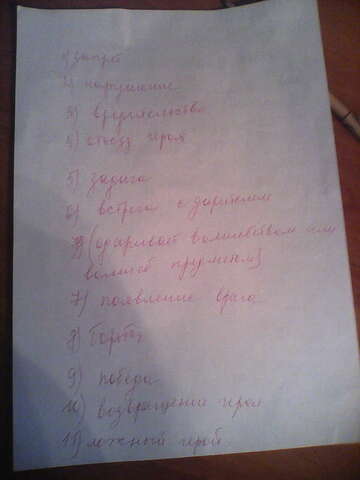 1) запрет
2) нарушение
3) вредительство
4) отъезд героя
5) задача
6) встреча с дарителем
(одаривает волшебством или
волшеб предметом)
7) появление врага
8) борьба
9) победа
10) возвращение героя
11) ложный герой